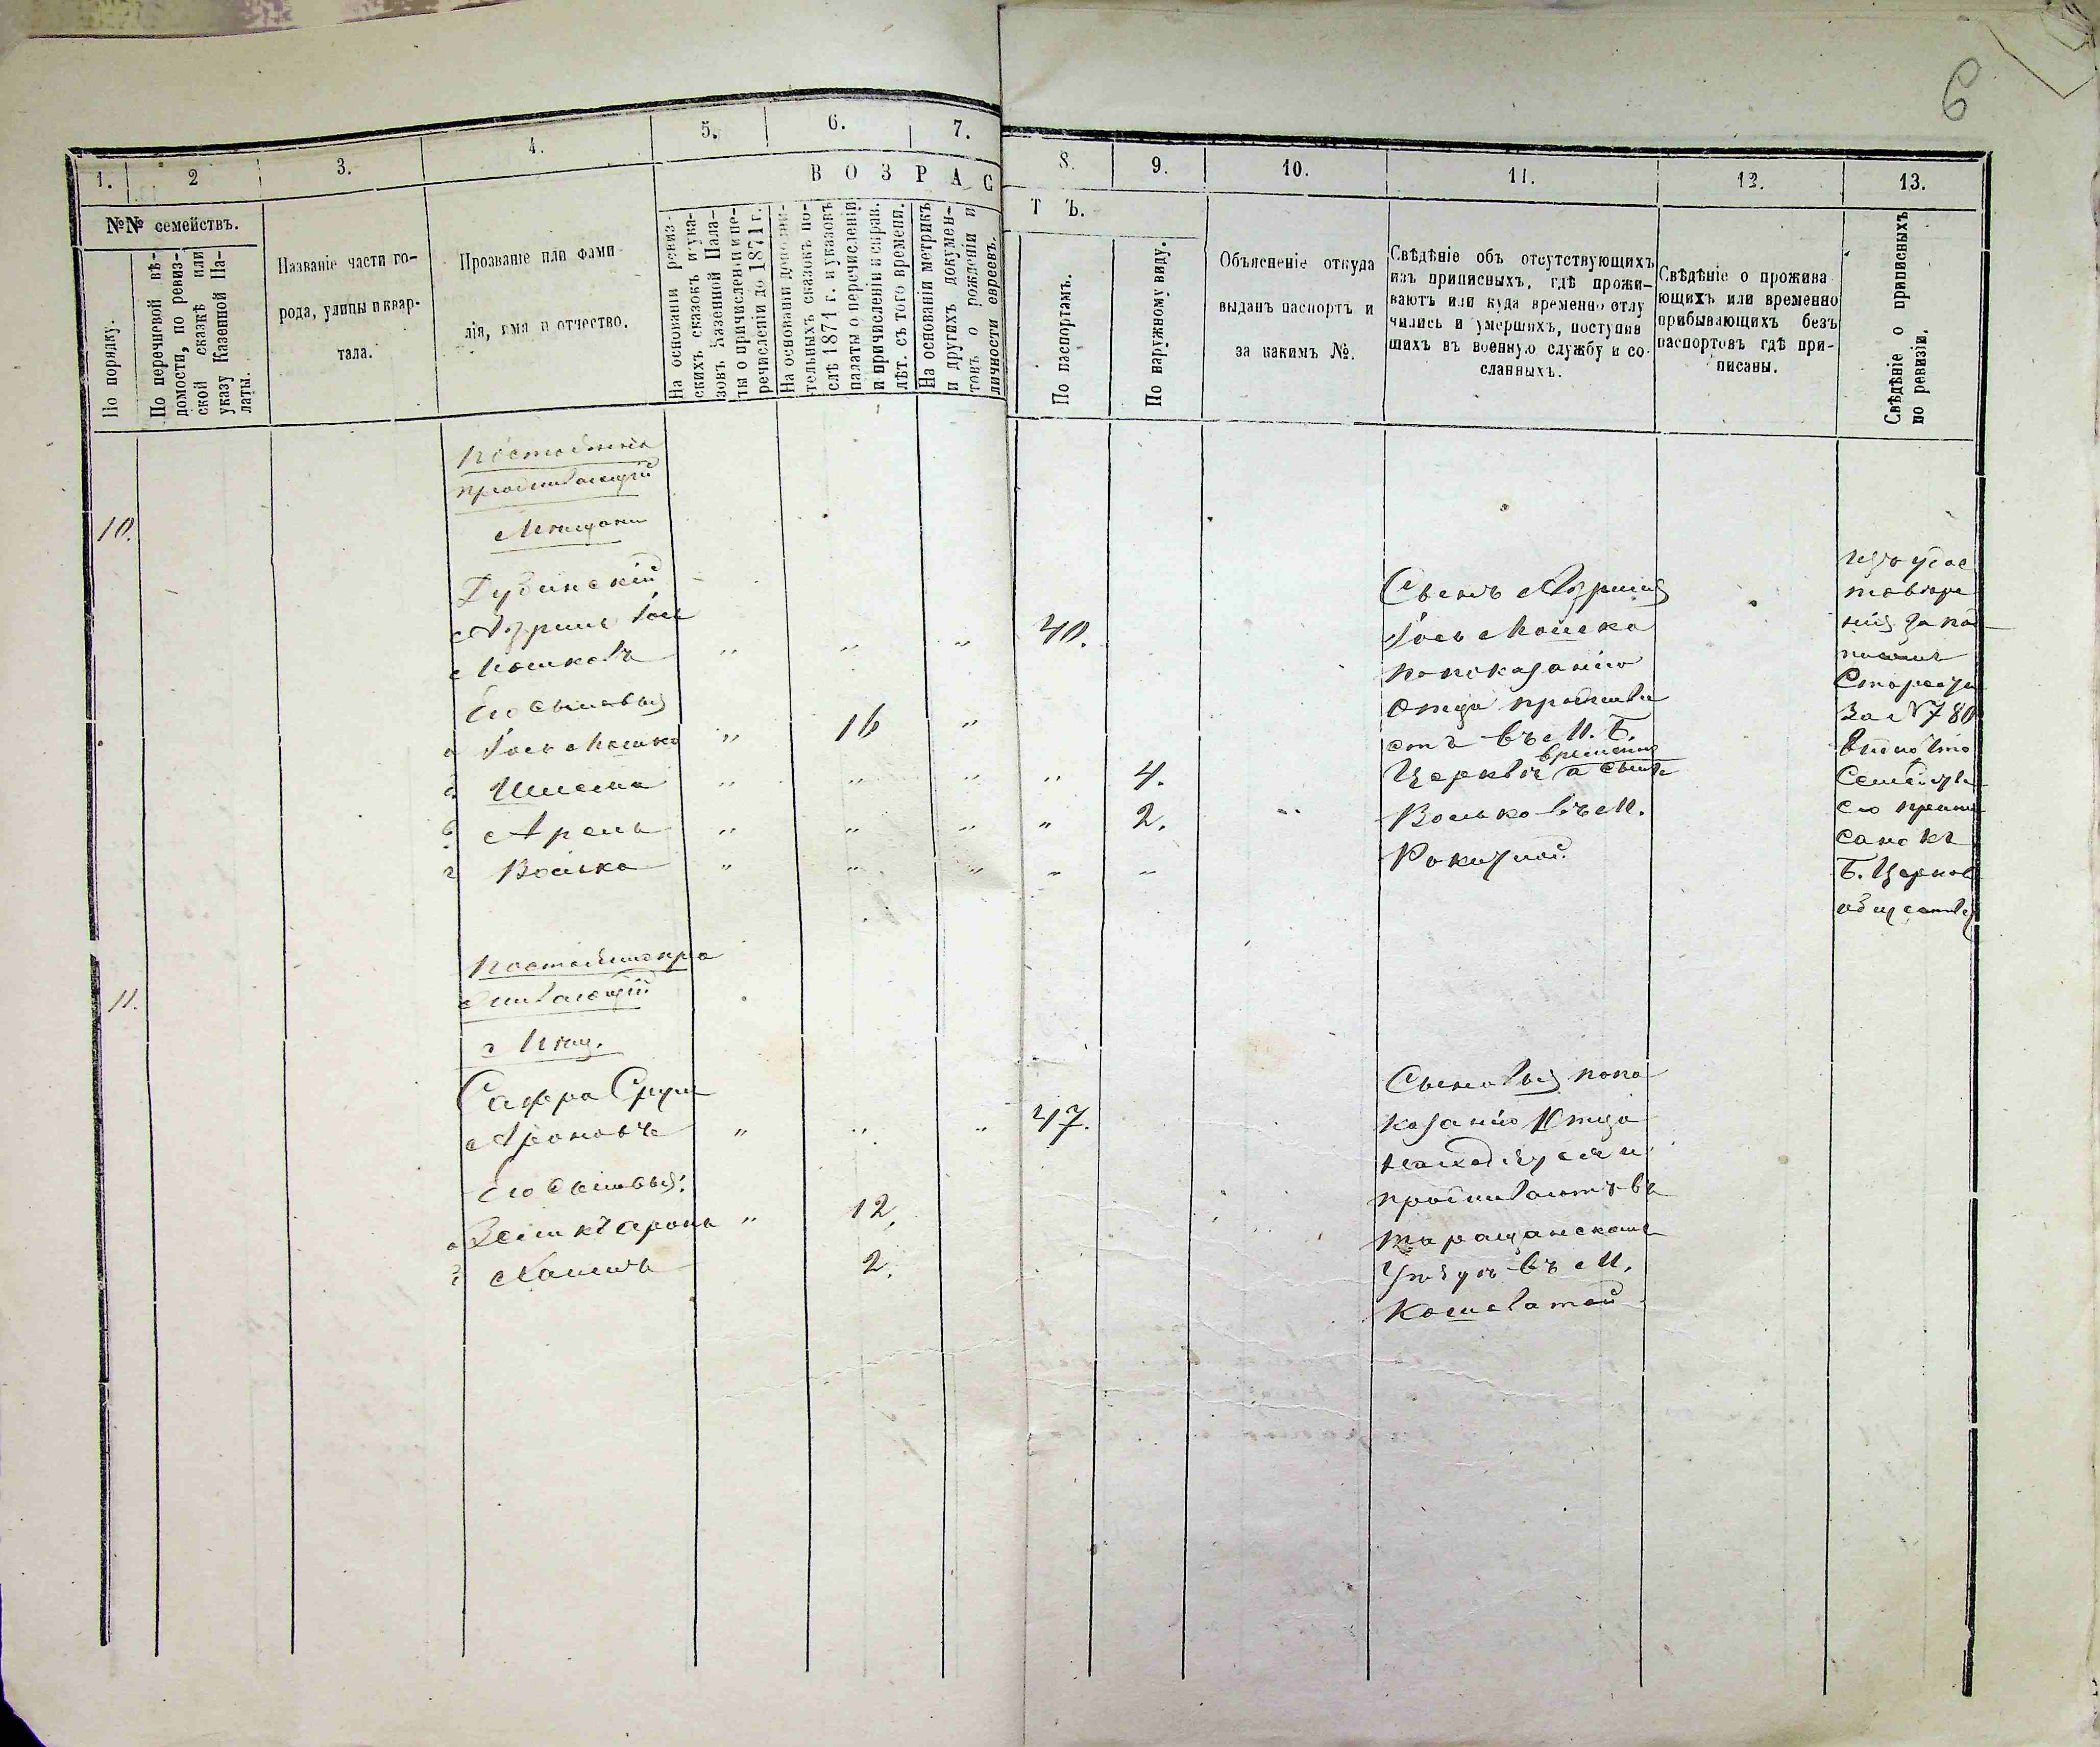 6
1.
2
3.
4.
5.
6.
7.
8.
9.
10.
11.
12.
13.
ВОЗРАС
ТЪ.
№№ семействъ.
По порядку.
По перечневой вѣ-
домости, по ревиз-
ской сказкѣ или
указу Казенной Па-
латы.
Названіе части го-
рода, улицы и квар-
тала.
Прозваніе или фами
лія, имя и отчество.
На основаніи ревиз-
скихъ сказокъ и ука-
зовъ Казенной Пала-
ты о причисленіи и пе-
речисленіи до 1871 г.
На основаніи дополни-
тельныхъ сказокъ по-
слѣ 1871 г. и указовъ
палаты о перечисленіи
и причисленіи и справ.
лѣт. съ того времени.
На основаніи метрикъ
и другихъ докумен-
товъ о рожденіи и
личности евреевъ.
По паспортамъ.
По наружному виду.
Объясненіе откуда
выданъ паспортъ и
за какимъ №.
Свѣдѣніе объ отсутствующихъ
изъ приписныхъ, гдѣ прожи-
ваютъ или куда временно отлу
чились и умершихъ, поступив
шихъ въ военную службу и со-
сланныхъ.
Свѣдѣніе о прожива
ющихъ или временно
прибывающихъ безъ
паспортовъ гдѣ при-
писаны.
Свѣдѣніе о приписныхъ
по ревизіи.
10.
Постоянно
проживающій
Мещани
Дубинскій
Мошковъ
Его сыновья
а Іось Мошко
Шлема
Арель
г Волько
" " " 40.
" 16 "
" " " " 4.
" " " " 2. "
" " " " "
Сынъ
Іось Мошко
по показанію
отца прожива
етъ въ М. Б.
временно
Церквѣ а сынъ
Волько въ М.
Рокитной.
изъ удос
товѣре
нія за под
писью
Старосты
за № 780
семейство
его припи
сано къ
Б. Церков
обществу
11.
Постоянно про
живающій
Мещ.
Сапфра Сруль
Ароновъ
Его сыновья:
а Зельикъ Аронъ
Хаимъ
" " " 47.
" 12.
2.
Сыновья по по
казанію Отца
находятся и
проживаютъ въ
Таращанскомъ
Уѣздѣ въ М.
Кошеватой